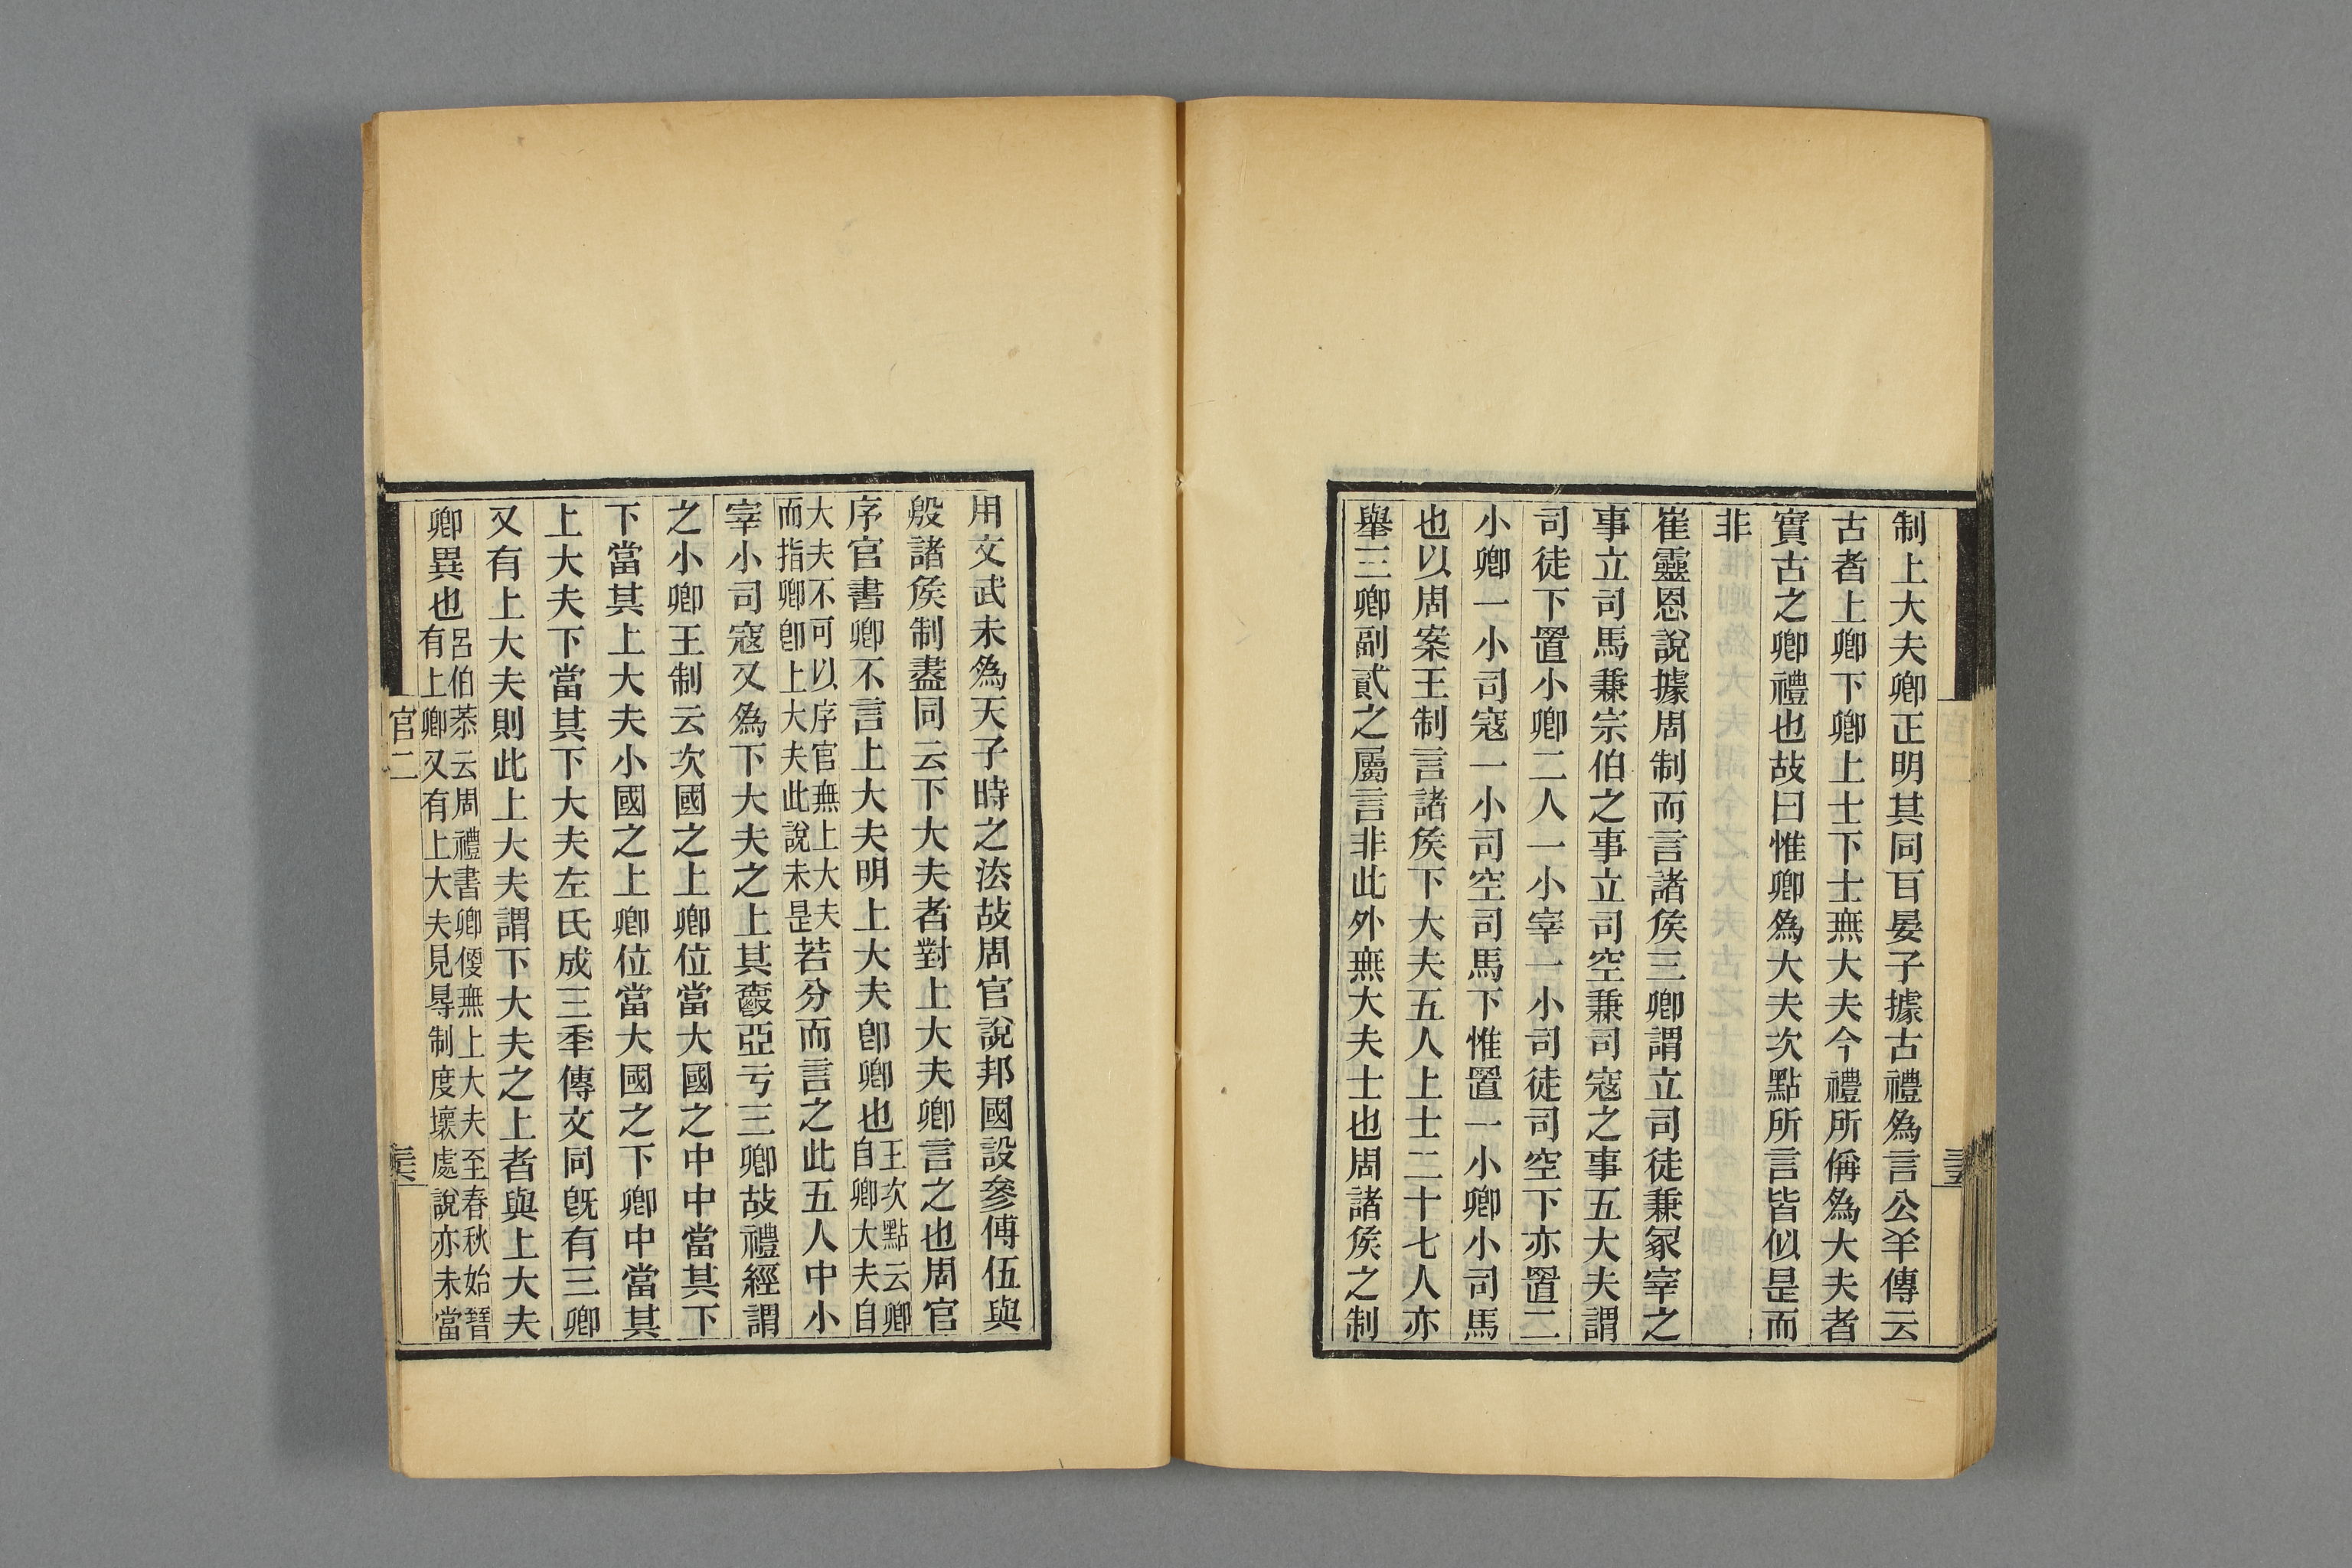 制上大夫卿正明其同百晏子據古禮爲言公羊傳云
古者上卿下卿上士下士無大夫今禮所偁爲大夫者
實古之卿禮也故曰惟卿爲大夫次點所言皆似是而
非
崔靈恩說據周制而言諸矦三卿謂立司徒兼冢宰之
事立司馬兼宗伯之事立司空兼司寇之事五大夫謂
司徒下置小卿二人一小宰一小司徒司空下亦置二
小卿一小司寇一小司空司馬下惟置一小卿小司馬
也以周案王制言諸矦下大夫五人上士二十七人亦
舉三卿副貳之屬言非此外無大夫士也周諸矦之制
用文武未爲天子時之法故周官說邦國設參傅伍與
殷諸矦制盡同云下大夫者對上大夫卿言之也周官
序官書卿不言上大夫明上大夫卽卿也王次點云卿自卿大夫自
大夫不可以序官無上大夫而指卿卽上大夫此說未是若分而言之此五人中小
宰小司寇又爲下大夫之上其餘亞亏三卿故禮經謂
之小卿王制云次國之上卿位當大國之中中當其下
下當其上大夫小國之上卿位當大國之下卿中當其
上大夫下當其下大夫左氏成三年傳文同旣有三卿
又有上大夫則此上大夫謂下大夫之上者與上大夫
卿異也呂伯菾云周禮書卿便無上大夫至春秋始朁有上卿又有上大夫見晷制度壞處說亦未當
官二